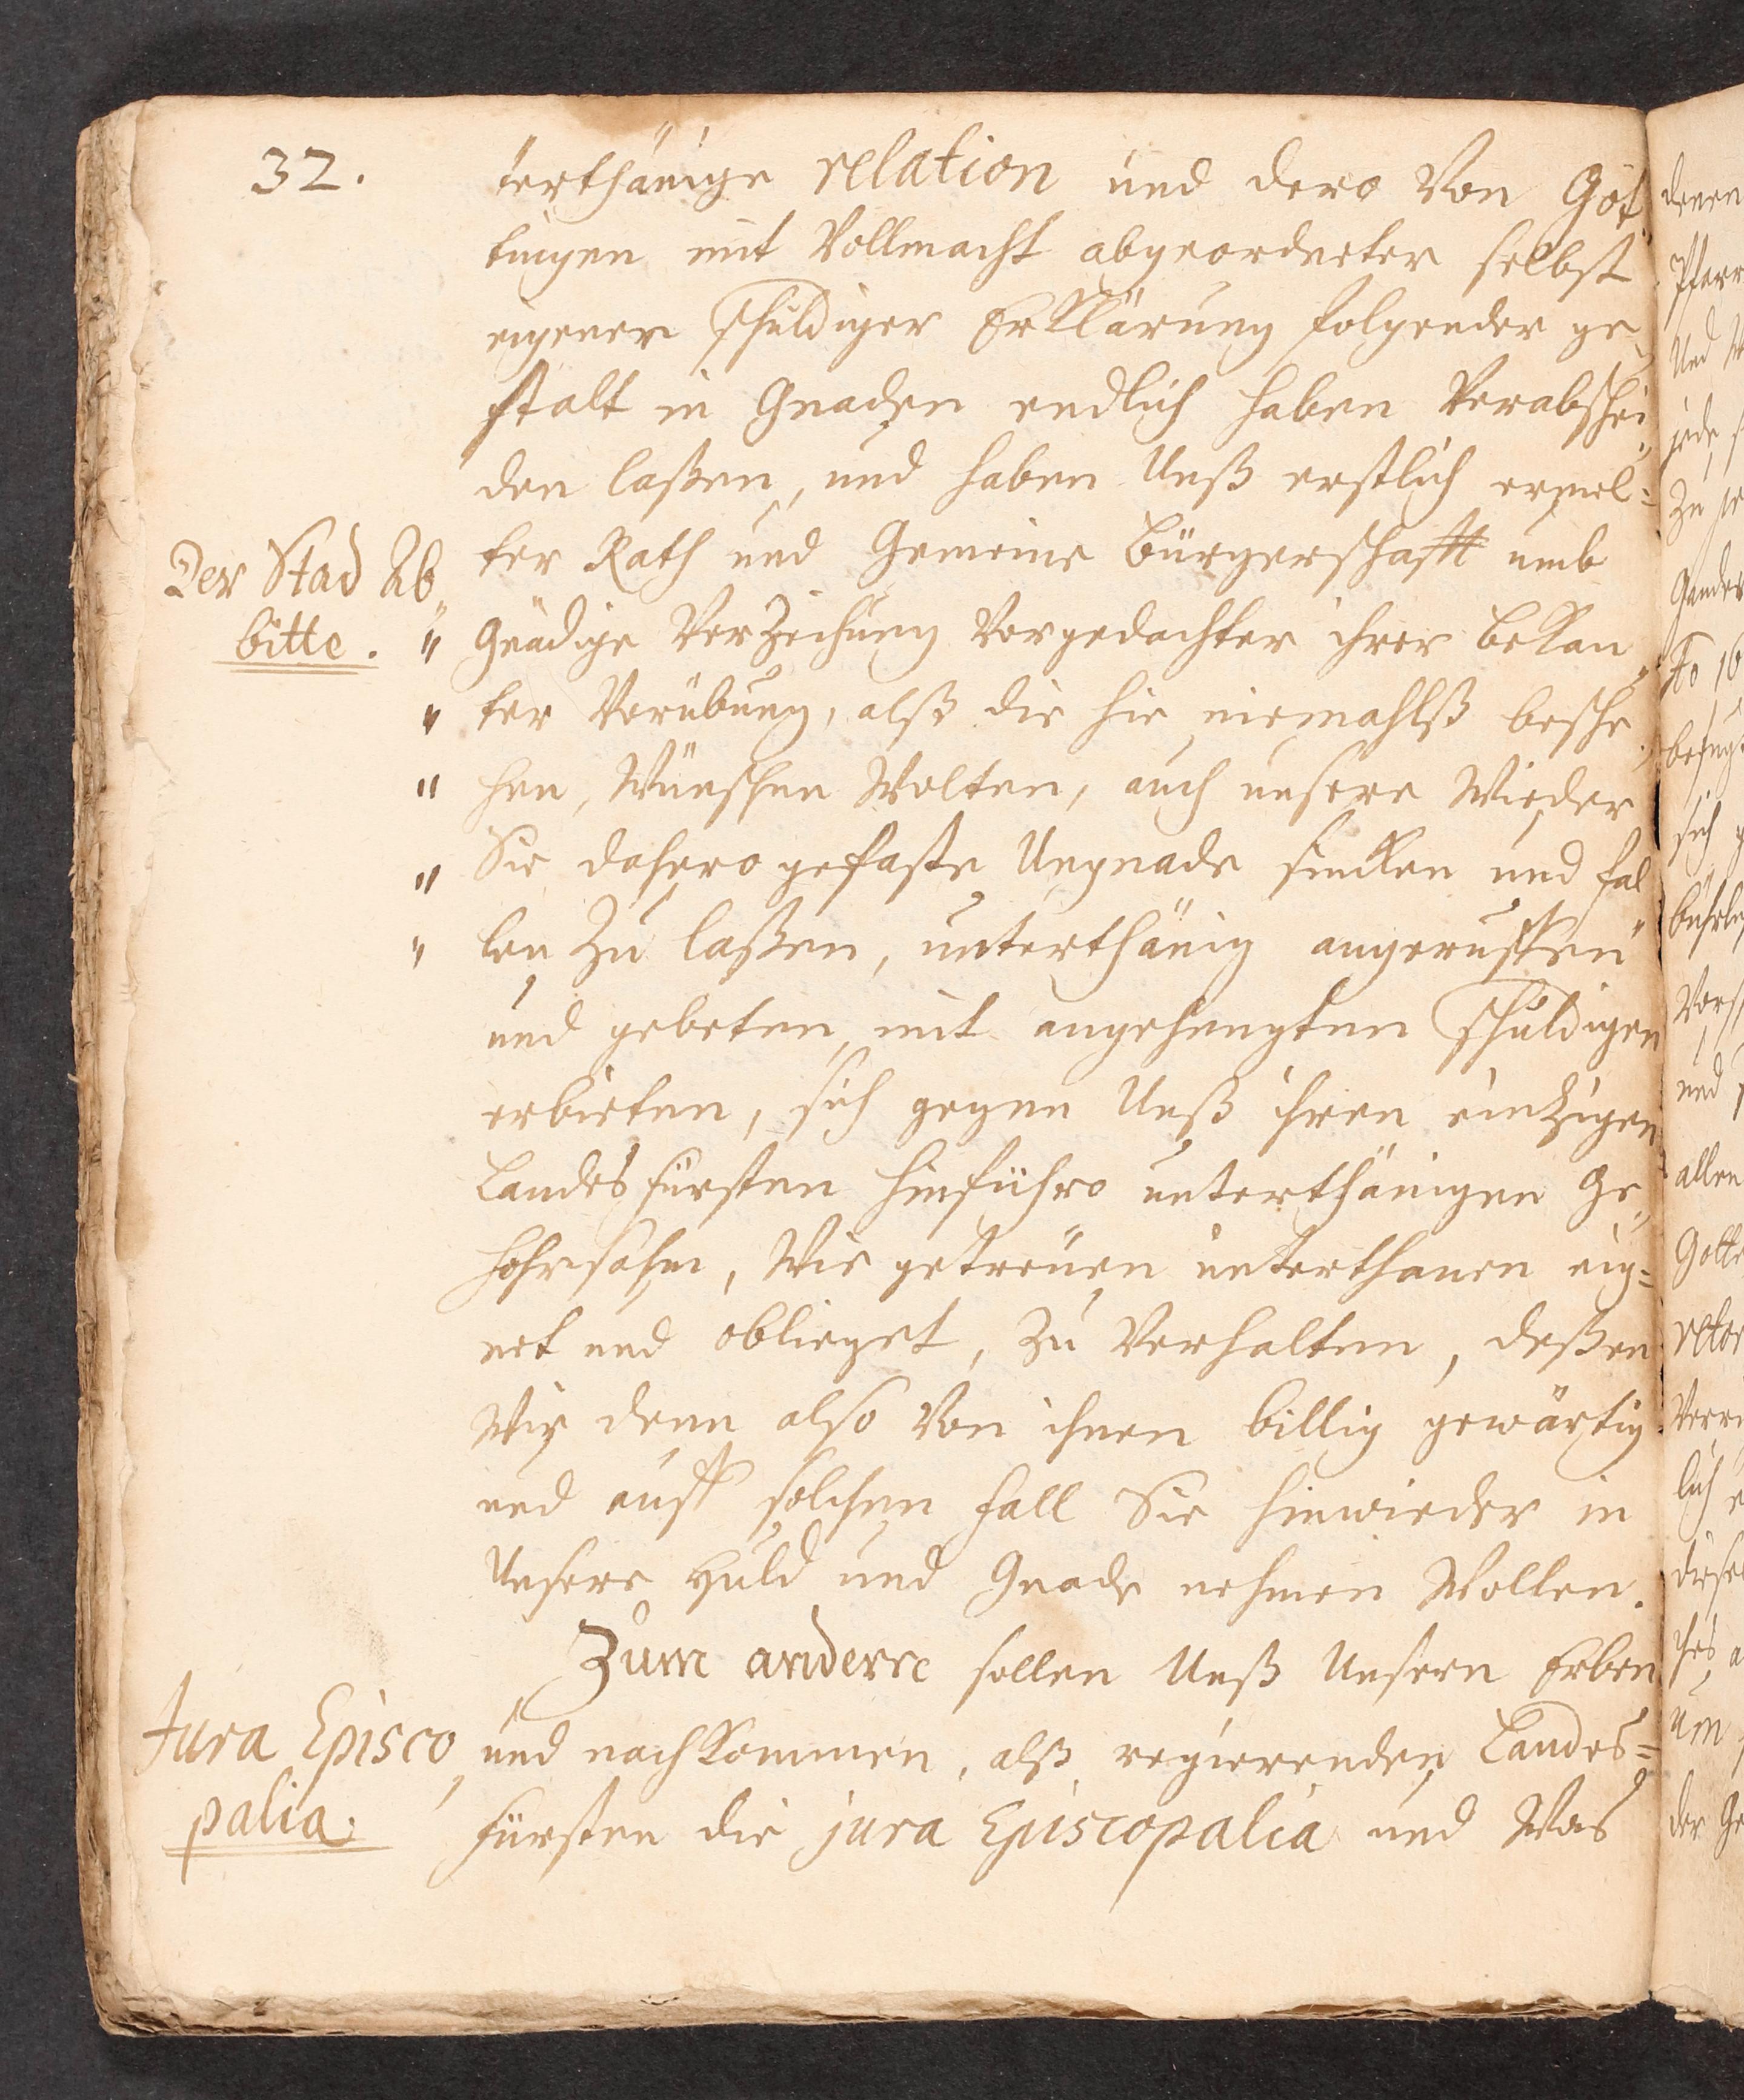 32.
terthänige relation und dero Von Göt„
tingen mit Vollmacht abgeordneter selbst
eigener schuldiger Erklärung folgender ge„
stalt in Gnaden endlich haben Verabschei„
den laßen, und haben Unß erstlich ermel=
ter Rath und Gemeine Bürgerschafft umb
Der Stad Ab„
bitte.
" Gnädige Verzeihung Vorgedachter ihrer bekan„
" ter Verübung, alß die sie niemahlß besche„
" hen, Wünschen Wolten, auch unsere Wieder
" Sie dahero gefaste Ungnade sincken und fal„
" len zu laßen, unterthänig angeruffen
und gebeten, mit angehengten schuldigen
erbieten, sich gegen Unß ihren eintzigen
Landes fürsten hinführo unterthänigen Ge„
hohrsahm, Wie getreüen unterthanen eig=
net und oblieget, zu Verhalten, deßen
Wir denn also Von ihnen billig gewärtig
und auff solchen fall Sie hinwieder in
Unsere Huld und Gnade nehmen Wollen.
Zum andern sollen Unß Unsern Erben
Jura Episco„
palia.
und nachkommen, alß regierenden Landes=
fürsten die jura Episcopalia und Was
denen
Pfarr
Und
jede,
Zu
Gander
befugt
sich
und
allen
Gotte
lich
diese
um
der Ge